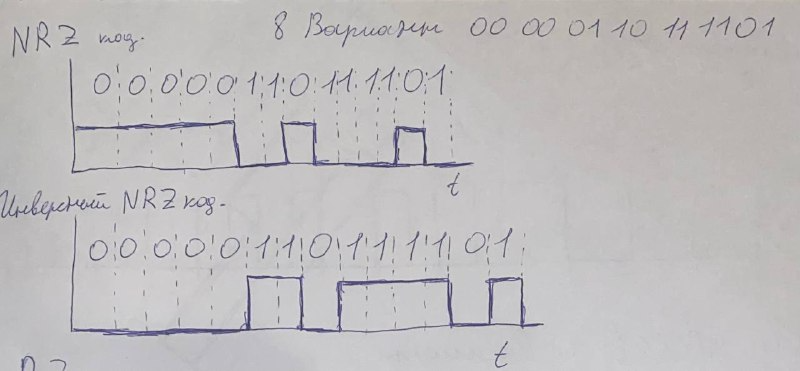 NRZ код. 8 Вариант 00 00 01 10 11 11 01
0 0 0 0 0 1 1 0 1 1 1 1 0 1
t
Инверсный NRZ код.
0 0 0 0 0 1 1 0 1 1 1 1 0 1
t